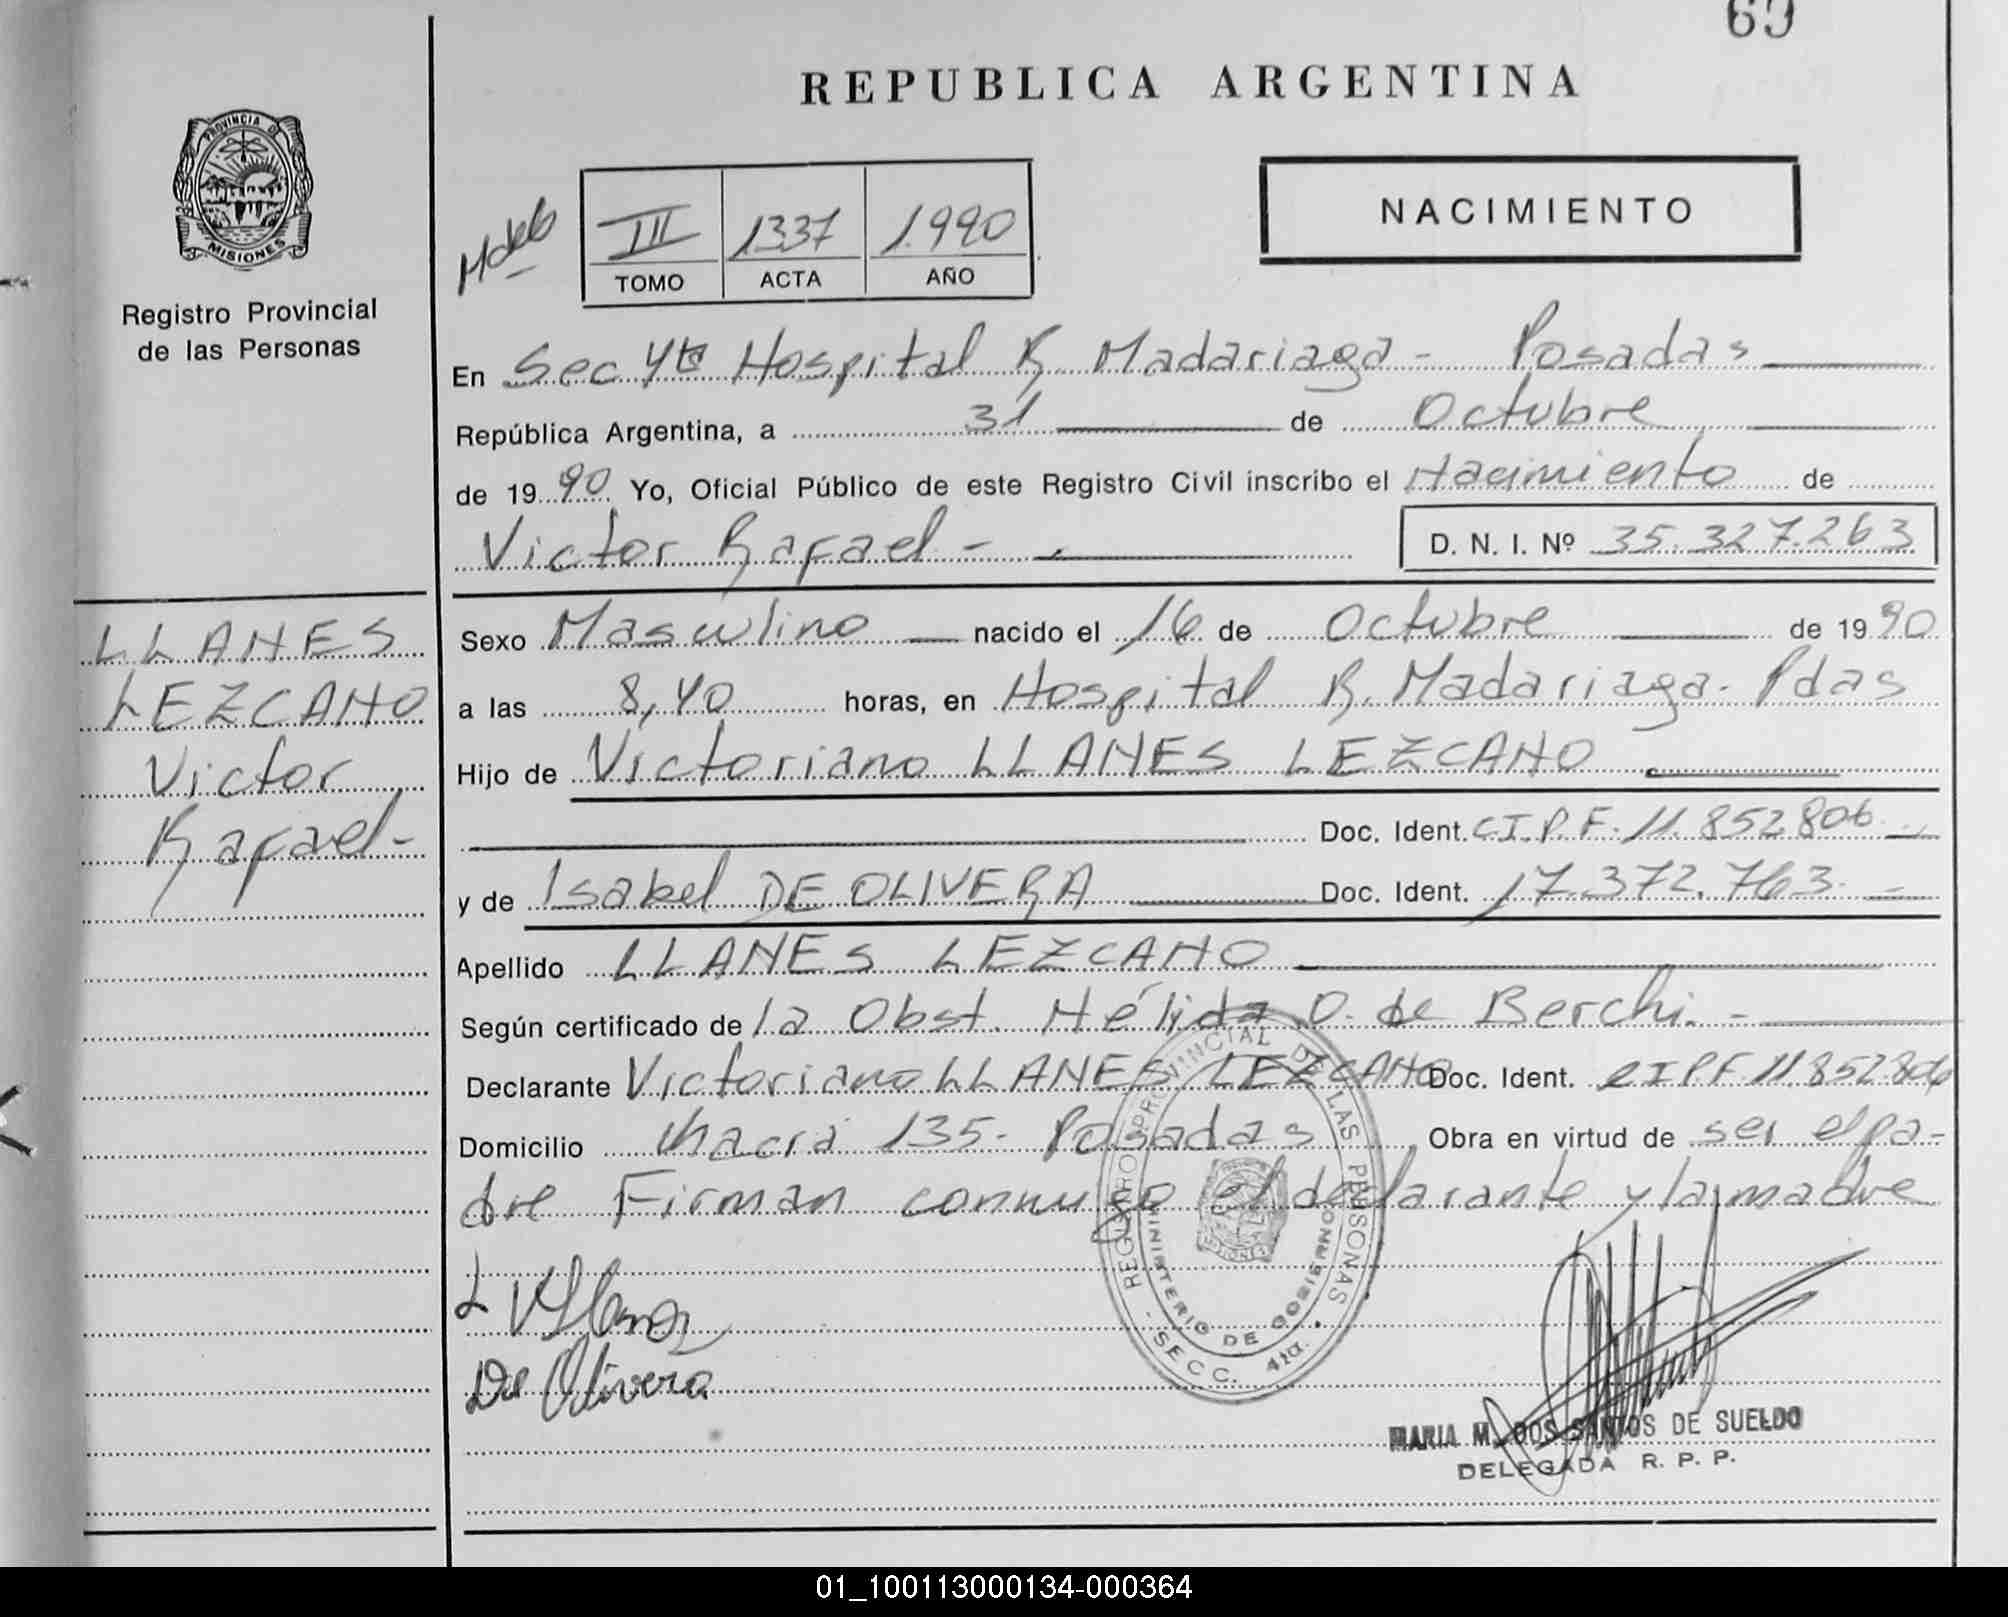 69
REPUBLICA ARGENTINA
PROVINCIA DE
MISIONES
Registro Provincial
de las Personas
III 1337 1.990
TOMO ACTA AÑO
NACIMIENTO
En Sec 4ta Hospital R. Madariaga - Posadas
República Argentina, a 31 de Octubre
de 1990 Yo, Oficial Público de este Registro Civil inscribo el Nacimiento de
Victor Rafael -
D. N. I. Nº 35.327.263
LLANES
LEZCANO
Victor
Rafael-
Sexo Masculino nacido el 16 de Octubre de 1990
a las 8,40 horas, en Hospital R. Madariaga. Pdas
Hijo de Victoriano LLANES LEZCANO
Doc. Ident. C.I.P.F. 11.852.806
y de Isabel DE OLIVERA Doc. Ident. 17.372.763.
Apellido LLANES LEZCANO
Según certificado de la Obst. Nélida O. de Berchi. -
Declarante Victoriano LLANES LEZCANO Doc. Ident. CIPF 11852806
Domicilio Chacra 135- Posadas Obra en virtud de ser el pa-
dre Firman conmigo el declarante y la madre
V Llanes
De Olivera
REGISTRO PROVINCIAL DE LAS PERSONAS
MINISTERIO DE GOBIERNO
- SECC. 4ta. -
MARIA M. DOS SANTOS DE SUELDO
DELEGADA R. P. P.
01_100113000134-000364